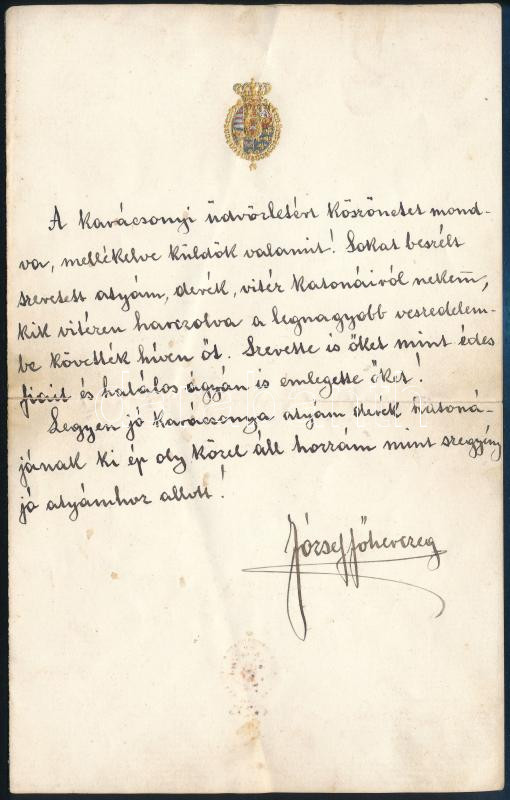 A karácsonyi üdvözletért köszönetet mond-
va, mellékelve küldök valamit! Sokat beszélt
szeretett atyám, derék, vitéz katonáiról nekem,
kik vitézen harczolva a legnagyobb veszedelem-
be követték híven őt. Szerette is őket mint édes
fiait és halálos ágyán is emlegette őket!
Legyen jó karácsonya atyám derék katoná-
jának ki ép oly közel áll hozzám mint szegény
jó atyámhoz állott!
József főherczeg